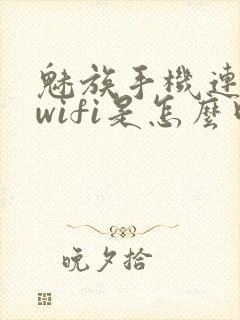 魅族手機連
wifi是怎麼
晚夕拾